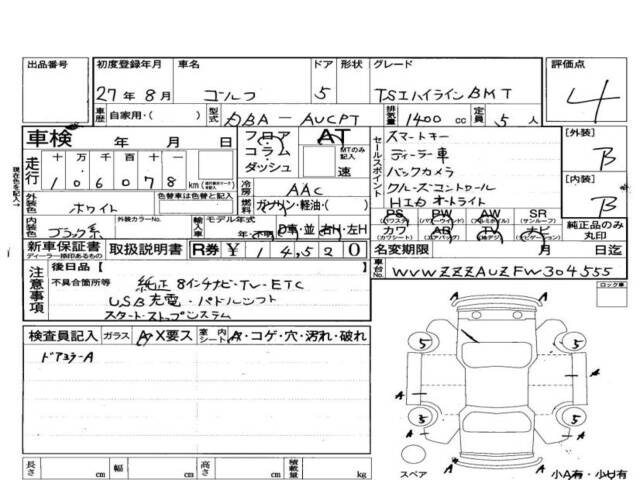 出品番号 初度登録年月 車名 ドア 形状 グレード 評価点
27年8月 ゴルフ 5 TSIハイライン BMT 4
車歴 自家用・( ) 型式 DBA-AUCPT 排気量 1400 cc 定員 5 人
車検 年 月 日 フロア コラム ダッシュ AT MTのみ記入 速
走行 十 万 千 百 十 一
106078 km
冷房 AAC
外装色 ホワイト 色替車は色替と記入 燃料 ガソリン・軽油・( )
内装色 ブラック系 外装カラーNo. 輸入車 モデル年式 D車・並 右H・左H
セールスポイント
スマートキー
ディーラー車
バックカメラ
クルーズコントロール
HID オートライト
PS (パワステ) PW (パワーウインド) AW (アルミホイル) SR (サンルーフ)
カワ (カワシート) AB (エアバッグ) TV ナビ (ナビゲーション)
[外装] B
[内装] B
純正品のみ丸印
新車保証書 ディーラー捺印あるもの 取扱説明書 R券 ¥ 14,520 名変期限 月 日迄
車台No. WVWZZZAUZFW304555
注意事項 後日品 [ ]
不具合箇所等 純正8インチナビ・TV・ETC
USB充電・パドルシフト
スタートストップシステム
ロック車
検査員記入 ガラス A・X要ス 室内シート A・コゲ・穴・汚れ・破れ
ドアミラーA
5 5 5 5
A A A A A
長さ cm 幅 cm 高さ cm 積載量 kg
スペア 小A有・小U有